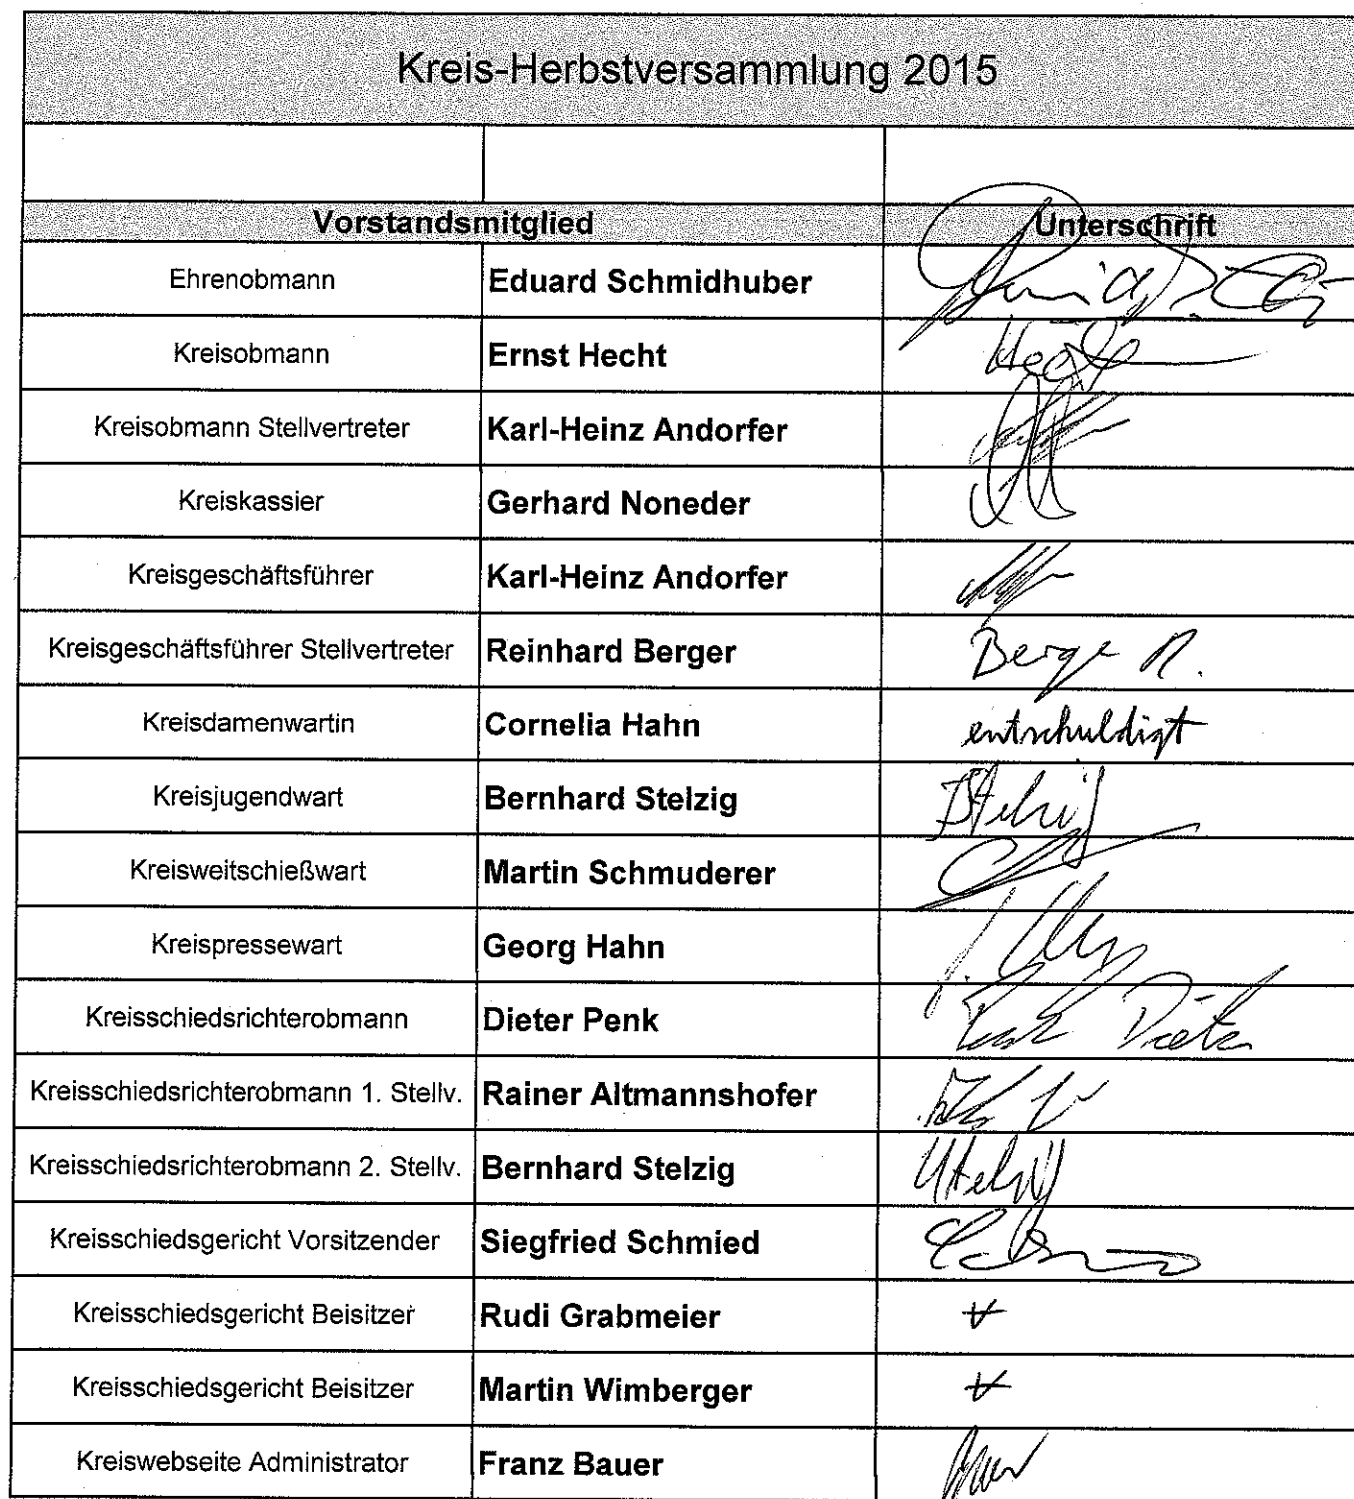 Kreis-Herbstversammlung 2015
Vorstandsmitglied Unterschrift
Ehrenobmann Eduard Schmidhuber
Kreisobmann Ernst Hecht
Kreisobmann Stellvertreter Karl-Heinz Andorfer
Kreiskassier Gerhard Noneder
Kreisgeschäftsführer Karl-Heinz Andorfer
Kreisgeschäftsführer Stellvertreter Reinhard Berger Berger R.
Kreisdamenwartin Cornelia Hahn entschuldigt
Kreisjugendwart Bernhard Stelzig BStelzig
Kreisweitschießwart Martin Schmuderer
Kreispressewart Georg Hahn
Kreisschiedsrichterobmann Dieter Penk Penk Dieter
Kreisschiedsrichterobmann 1. Stellv. Rainer Altmannshofer
Kreisschiedsrichterobmann 2. Stellv. Bernhard Stelzig
Kreisschiedsgericht Vorsitzender Siegfried Schmied
Kreisschiedsgericht Beisitzer Rudi Grabmeier
Kreisschiedsgericht Beisitzer Martin Wimberger
Kreiswebseite Administrator Franz Bauer